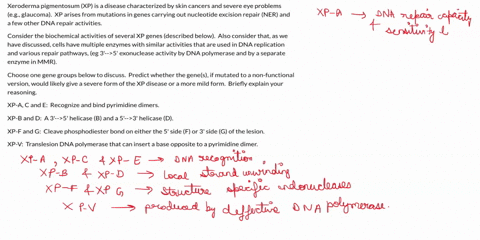 Xeroderma pigmentosum (XP) is a disease characterized by skin cancers and severe eye problems
(e.g., glaucoma). XP arises from mutations in genes carrying out nucleotide excision repair (NER) and
a few other DNA repair activities.
Consider the biochemical activities of several XP genes (described below). Also consider that, as we
have discussed, cells have multiple enzymes with similar activities that are used in DNA replication
and various repair pathways, (eg 3'->5' exonuclease activity by DNA polymerase and by a separate
enzyme in MMR).
Choose one gene groups below to discuss. Predict whether the gene(s), if mutated to a non-functional
version, would likely give a severe form of the XP disease or a more mild form. Briefly explain your
reasoning.
XP-A, C and E: Recognize and bind pyrimidine dimers.
XP-B and D: A 3'->5' helicase (B) and a 5'->3' helicase (D).
XP-F and G: Cleave phosphodiester bond on either the 5' side (F) or 3' side (G) of the lesion.
XP-V: Translesion DNA polymerase that can insert a base opposite to a pyrimidine dimer.
XP-A → DNA repair capacity
+ sensitivity
XP-A, XP-C & XP-E → DNA recognition
XP-B & XP-D → Local strand unwinding
XP-F & XP G → Structure specific indonucleases
XP-V → produced by deffective DNA polymerase.